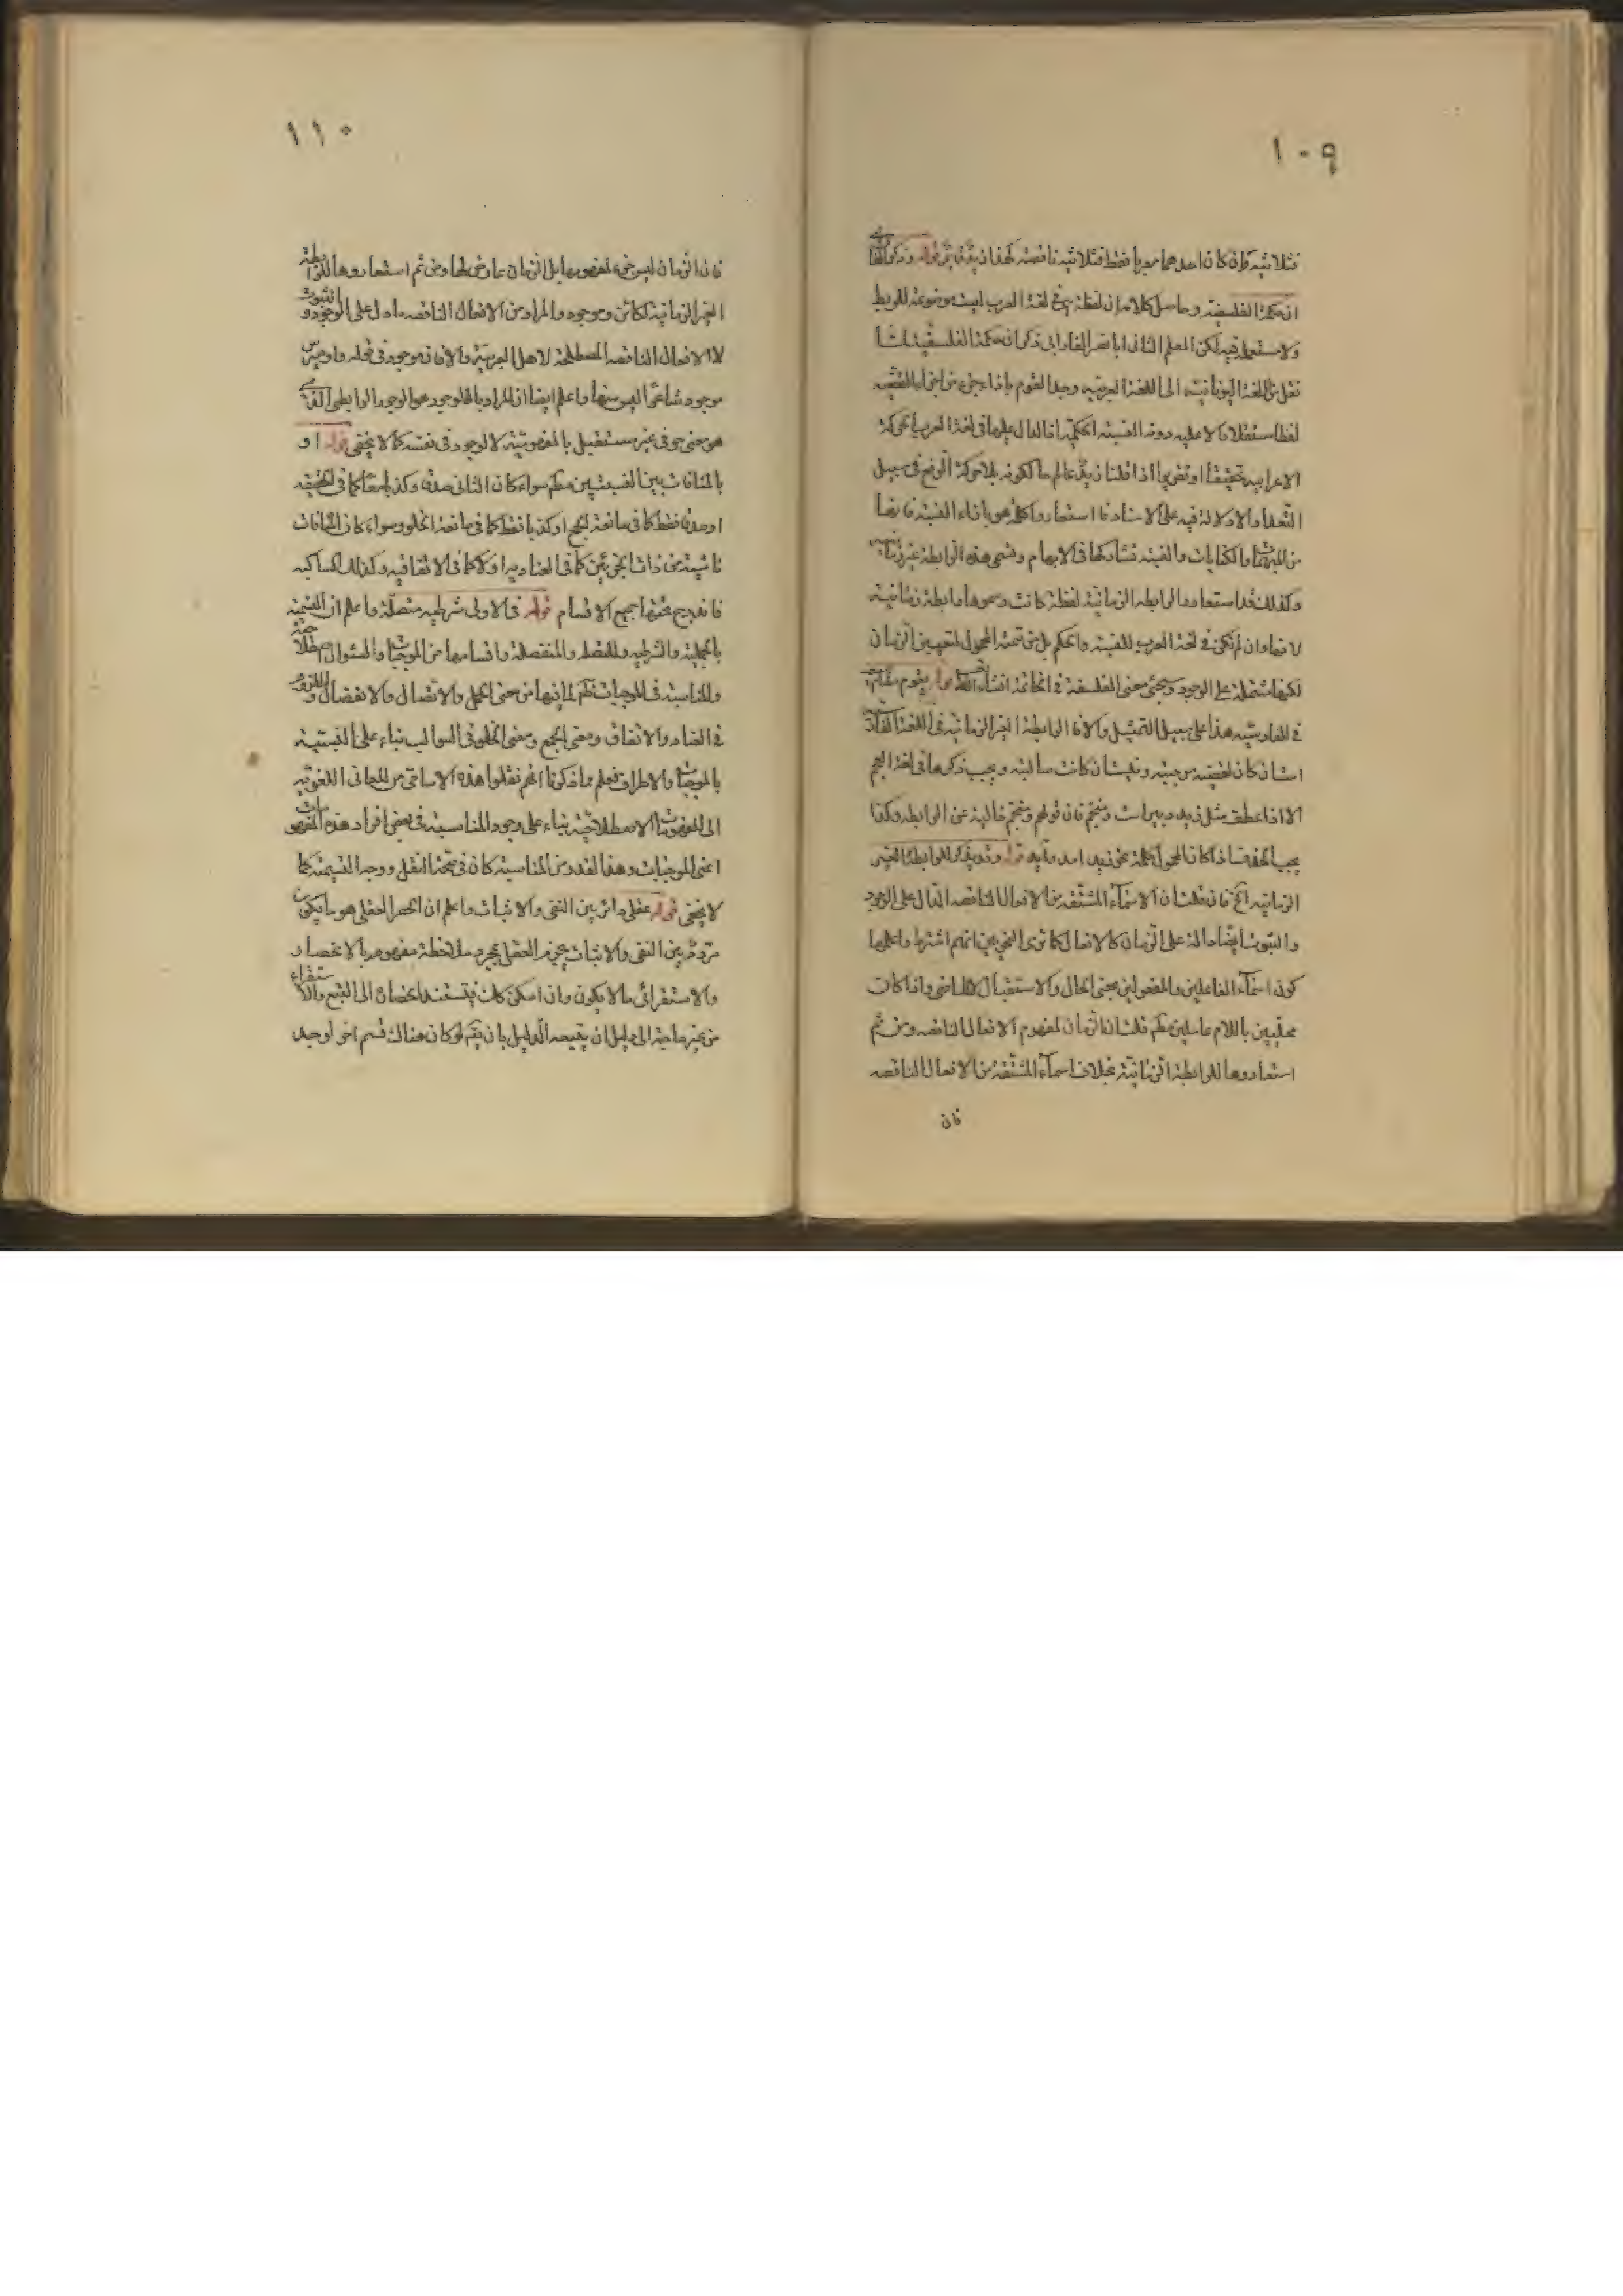 ١٠٩
فثلاثية وان كان احدهما معربا فقط فثلاثية ناقصة قوله وذكر الفارابي
ان الحكمة الفلسفية وحاصل كلامه ان لفظة هو في لغة العرب ليست موضوعة للربط
ولا يستعمل فيه لكن المعلم الثاني ابا نصر الفارابي ذكر ان حكمة الفلسفية لما
نقل من اللغة اليونانية الى اللغة العربية وجد القوم بازاء جزء من اجزاء القضية
لفظا مستقلا دالا عليه دون النسبة الحكمية اذ الدال عليها في لغة العرب الحركة
الاعرابية تحقيقا او تقديرا اذا قلنا زيد عالم بلا حركة الرفع في سبيل
التعداد لا دلالة فيه على الاسناد فاستعاروا كلمة هو بازاء النسبة
من المبهمات والكنايات والنسبة تشاركها في الابهام وتسمى هذه الرابطة غير زمانية
وكذلك قد استعاروا الرابطة الزمانية لفظة كانت وسموها رابطة زمانية
لانها وان لم تكن في لغة العرب للنسبة والحكم بل من تتمة المحمول لتعيين الزمان
لكنها مشتملة على الوجود وسيجيء معنى الفلسفة في الخاتمة انشاء الله قوله يقوم مقام
في الفارسية هذا على سبيل التمثيل والا فالرابطة الغير الزمانية في اللغة الفارسية
است ان كان القضية موجبة ونيست ان كانت سالبة ويجب ذكرها في لغة العجم
الا اذا عطف مثل زيد دبير است ومنجم فان قولهم ومنجم خالية عن الرابطة وكذا
يجب الحذف اذا كان المحول كلمة نحو زيد امد قوله وقد يذكر للرابطة الغير
الزمانية الخ فان قلت ان الاسماء المشتقة من الافعال الناقصة الدال على الوجود
والثبوت ايضا دالة على الزمان كالافعال كما ترى النحويين انهم اشترطوا علمها
كون اسماء الفاعلين والمفعولين بمعنى الحال والاستقبال الماضي واذا كانت
محليين باللام عاملين قلت ان الزمان لمفهوم الافعال الناقصة ومن ثم
استعاروها للرابطة الزمانية بخلاف اسماء المشتقة من الافعال الناقصة
فان
١١٠
فان الزمان ليس جزء لمفهومها بل الزمان عارض لها ومن ثم استعاروها للرابطة
الغير الزمانية ككائن وموجود والمراد من الافعال الناقصة ما دل على الوجود والثبوت
لا الافعال الناقصة المصطلحة لاهل العربية والا فان موجود في قوله اوميرس
موجود شاعرا ليس منها واعلم ايضا ان المراد بالوجود هو الوجود الرابطي الذي
هو معنى حرفي غير مستقيل بالمفهومية لا الوجود في نفسه كما لا يخفى قوله او
بالمنافات بين النسبتين سواء كان الثاني صدقا وكذبا معا كما في الحقيقية
او صدقا فقط كما في مانعة الجمع او كذبا فقط كما في مانعة الخلو وسواء كان المنافات
ناشية من ذات الجزئين كما في العنادية او لا كما في الاتفاقيه وكذلك
فاندرج تحتها جميع الاقسام قوله فالاولى شرطيه متصلة واعلم ان التسمية
بالحملية والشرطية والمتصلة والمنفصلة واقسامها من الموجبات والسوال اصطلاحية
والمناسبة في الموجبات لما فيها من معنى الحمل والاتصال والانفصال واللزوم
والعناد والاتفاق ومعنى الجمع ومعنى الخلو في السوالب بناء على النسبية
بالموجبات والاطراف فعلم مما ذكرنا انهم نقلوا هذه الاسامي من المعاني اللغوية
الى المفهومات الاصطلاحية بناء على وجود المناسبة في بعض افراد هذه المفهومات
اعني الموجبات وهذا القدر من المناسبة كان في صحة النقل ووجه التسمية كما
لا يخفى قوله عقلي دائر بين النفي والاثبات واعلم ان الحصر العقلي هو ما يكون
مرددا بين النفي والاثبات يجزم العقل بمجرد ملاحظة مفهومه بالانحصار
والاستقرائي ما لا يكون وان امكن كانت فيستند انحصاره الى التتبع والاستقراء
من غير حاجة الى دليل ان يقيمه الدليل بان يقال لو كان هناك قسم اخر لوجد